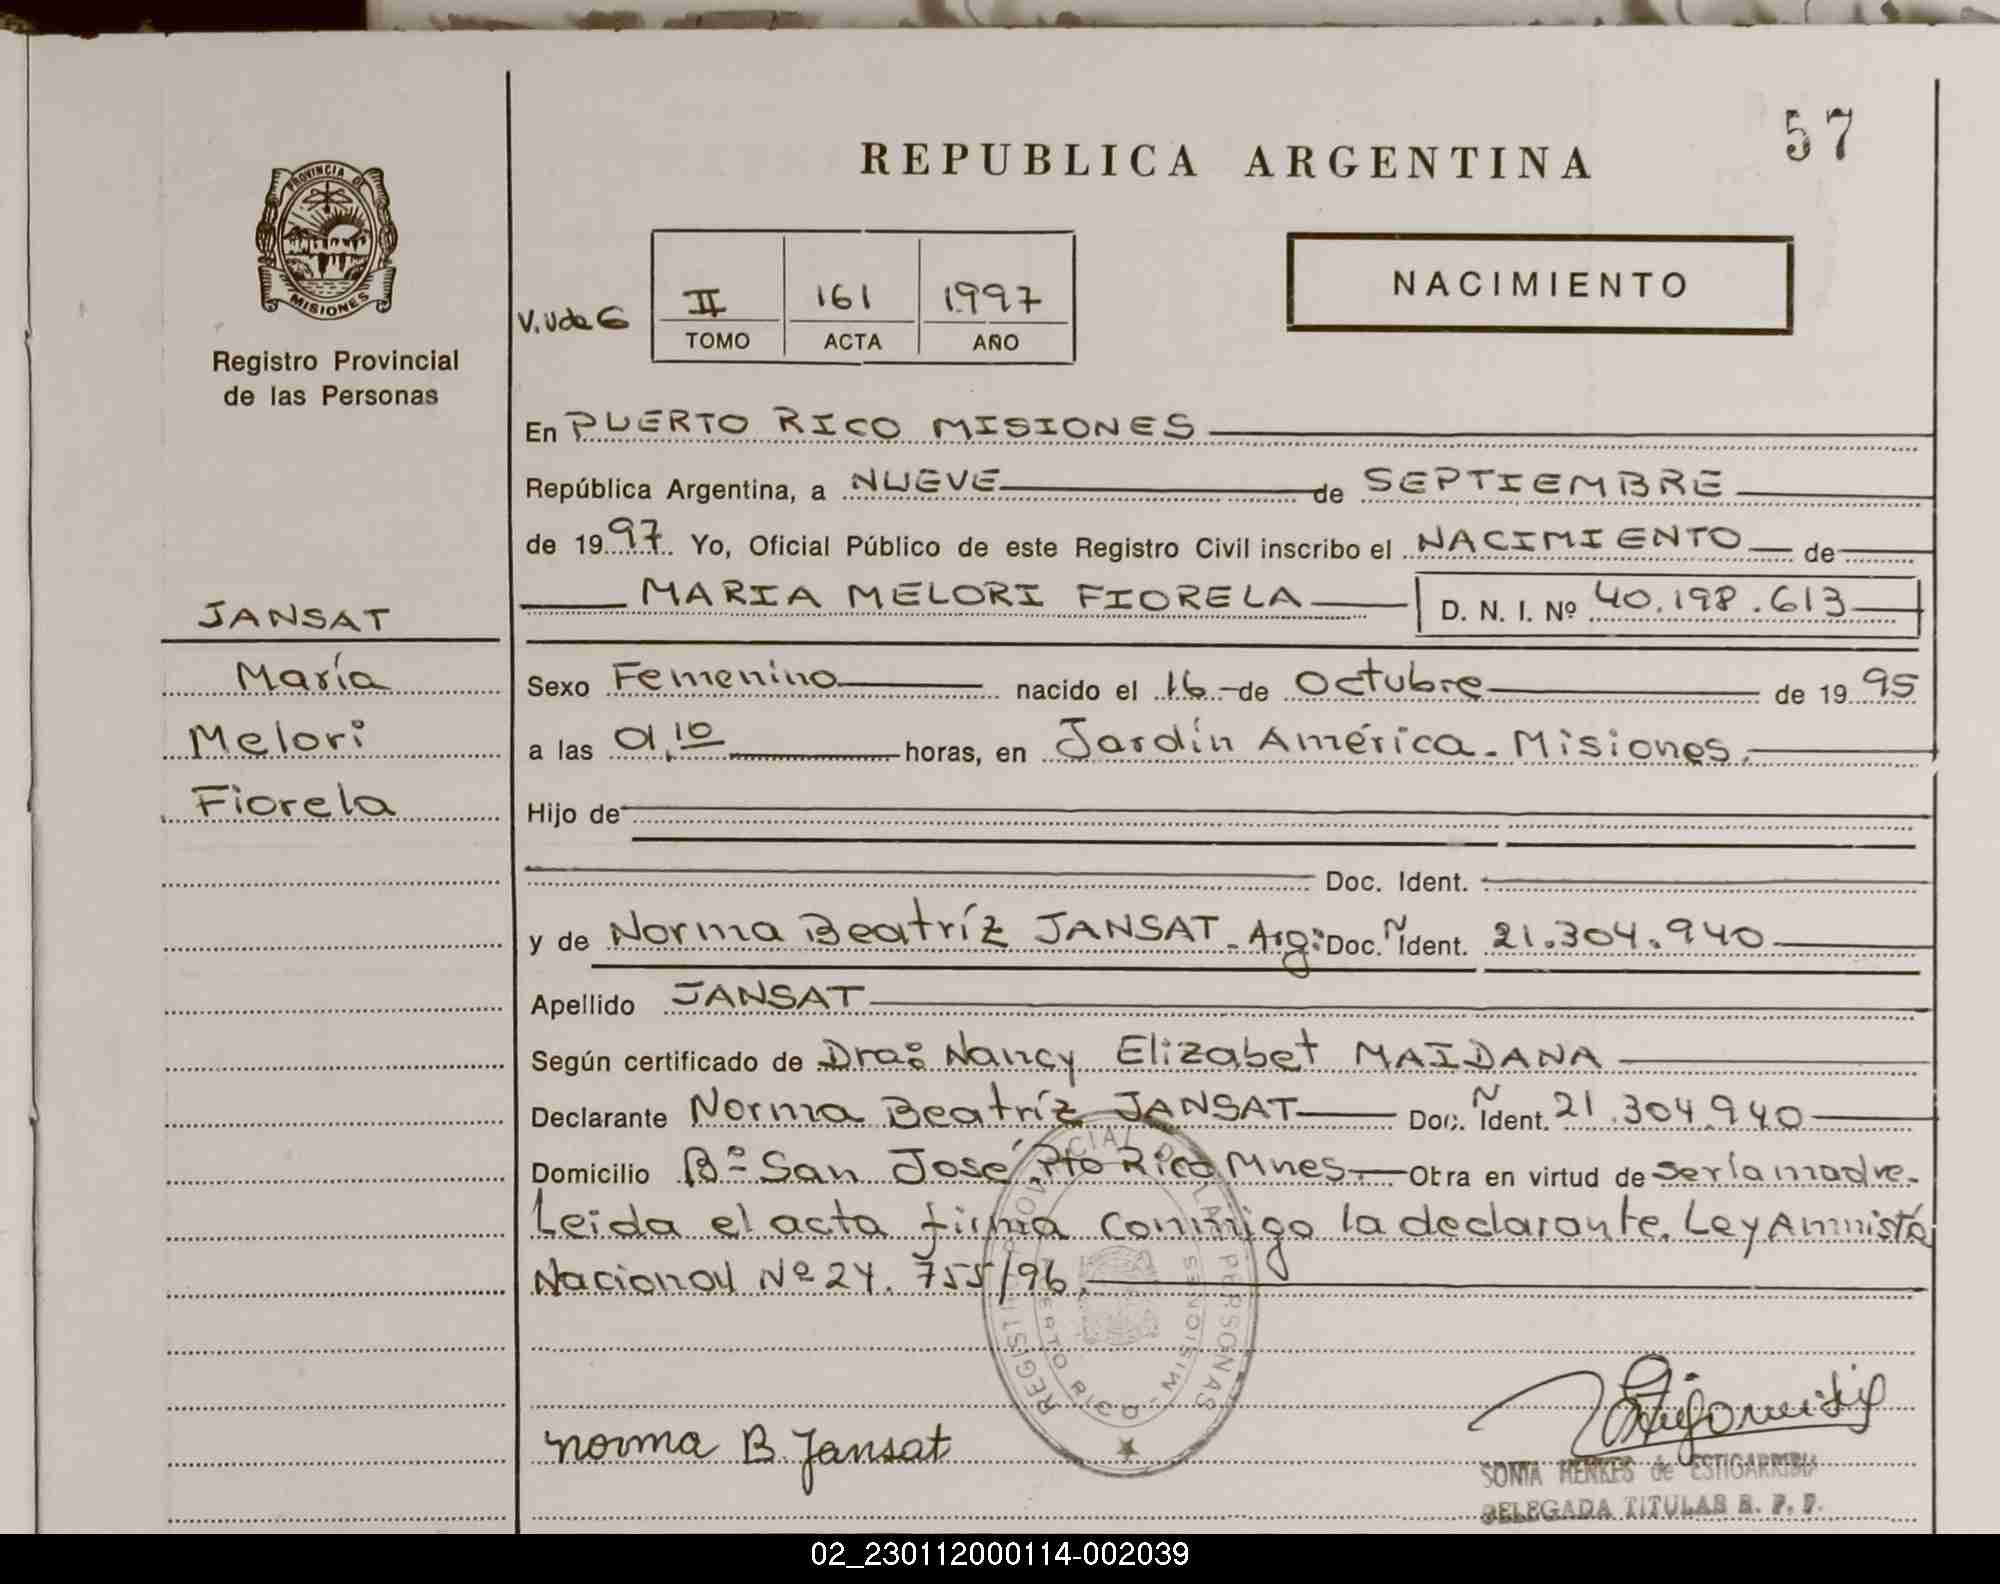 57
REPUBLICA ARGENTINA
PROVINCIA DE
MISIONES
Registro Provincial
de las Personas
NACIMIENTO
V. Uda G
II 161 1997
TOMO ACTA AÑO
En PUERTO RICO MISIONES
República Argentina, a NUEVE de SEPTIEMBRE
de 1997. Yo, Oficial Público de este Registro Civil inscribo el NACIMIENTO de
MARIA MELORI FIORELA D. N. I. Nº 40.198.613
JANSAT
María
Melori
Fiorela
Sexo Femenino nacido el 16 de Octubre de 1995
a las 01,10 horas, en Jardín América - Misiones.
Hijo de
Doc. Ident.
y de Norma Beatríz JANSAT - Arg: Doc. Ñ Ident. 21.304.940
Apellido JANSAT
Según certificado de Dra: Nancy Elizabet MAIDANA
Declarante Norma Beatríz JANSAT Doc. Ñ Ident. 21.304.940
Domicilio Bº San José Pto Rico Mnes. Obra en virtud de ser la madre.
Leida el acta firma conmigo la declarante. Ley Amnistía
Nacional Nº 24.755/96.
REGIST PROVINCIAL D LAS PERSONAS
ERTO RICO - MISIONES
Norma B. Jansat
SONIA HENKES de ESTIGARRIBIA
DELEGADA TITULAR R. P. P.
02_230112000114-002039